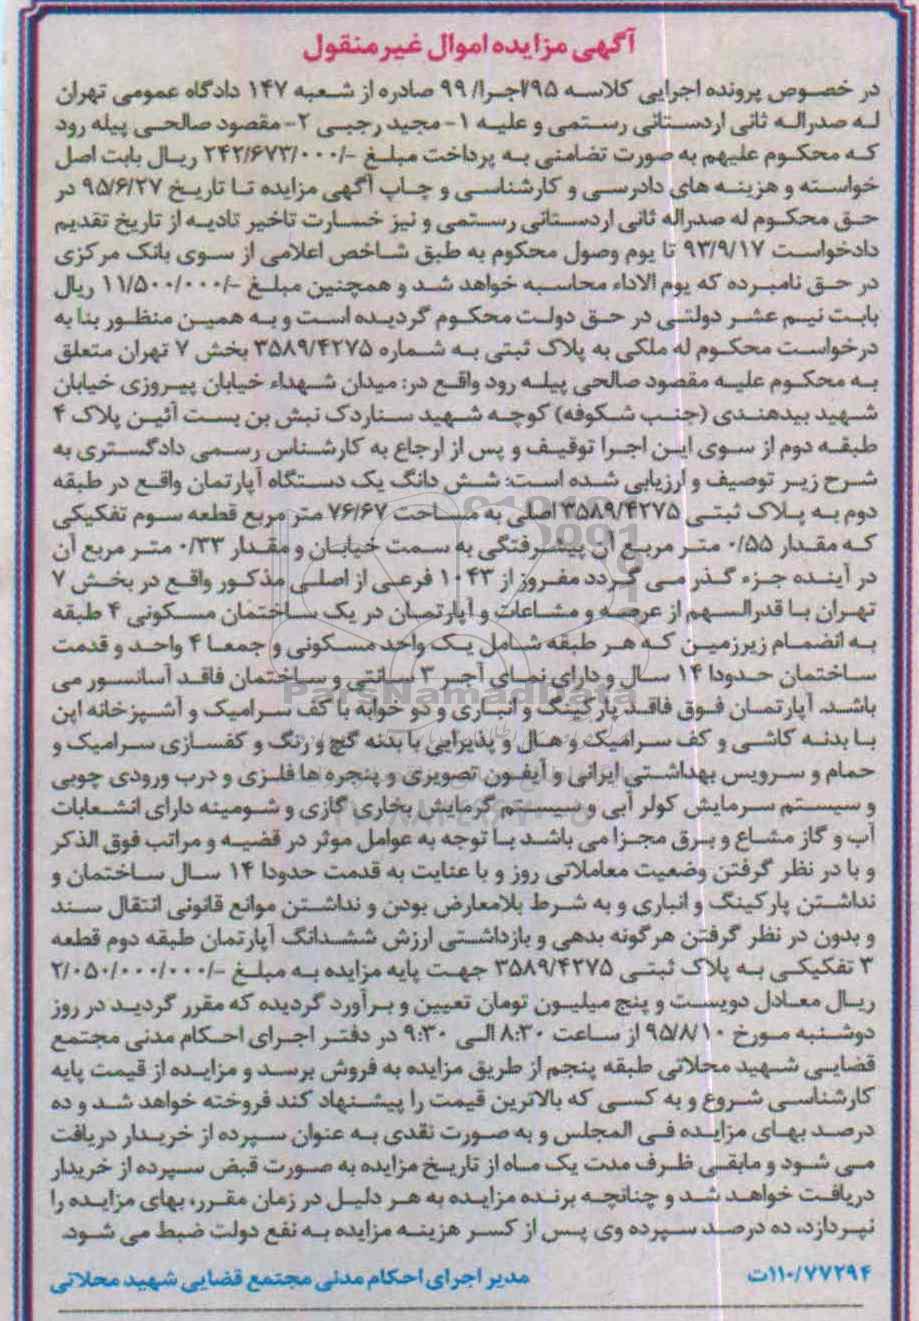 آگهی مزایده اموال غیرمنقول
در خصوص پرونده اجرایی کلاسه ۹۵/اجرا/ ۹۹ صادره از شعبه ۱۴۷ دادگاه عمومی تهران
له صدراله ثانی اردستانی رستمی و علیه ۱- مجید رجبی ۲- مقصود صالحی پیله رود
که محکوم علیهم به صورت تضامنی به پرداخت مبلغ -/۲۴۲/۶۷۳/۰۰۰ ریال بابت اصل
خواسته و هزینه های دادرسی و کارشناسی و چاپ آگهی مزایده تا تاریخ ۹۵/۶/۲۷ در
حق محکوم له صدراله ثانی اردستانی رستمی و نیز خسارت تاخیر تادیه از تاریخ تقدیم
دادخواست ۹۳/۹/۱۷ تا یوم وصول محکوم به طبق شاخص اعلامی از سوی بانک مرکزی
در حق نامبرده که یوم الاداء محاسبه خواهد شد و همچنین مبلغ -/۱۱/۵۰۰/۰۰۰ ریال
بابت نیم عشر دولتی در حق دولت محکوم گردیده است و به همین منظور بنا به
درخواست محکوم له ملکی به پلاک ثبتی به شماره ۳۵۸۹/۴۲۷۵ بخش ۷ تهران متعلق
به محکوم علیه مقصود صالحی پیله رود واقع در: میدان شهداء خیابان پیروزی خیابان
شهید بیدهندی (جنب شکوفه) کوچه شهید ستاردک نبش بن بست آئین پلاک ۴
طبقه دوم از سوی این اجرا توقیف و پس از ارجاع به کارشناس رسمی دادگستری به
شرح زیر توصیف و ارزیابی شده است: شش دانگ یک دستگاه آپارتمان واقع در طبقه
دوم به پلاک ثبتی ۳۵۸۹/۴۲۷۵ اصلی به مساحت ۷۶/۶۷ متر مربع قطعه سوم تفکیکی
که مقدار ۰/۵۵ متر مربع آن پیشرفتگی به سمت خیابان و مقدار ۰/۳۳ متر مربع آن
در آینده جزء گذر می گردد مفروز از ۱۰۴۳ فرعی از اصلی مذکور واقع در بخش ۷
تهران با قدرالسهم از عرصه و مشاعات و آپارتمان در یک ساختمان مسکونی ۴ طبقه
به انضمام زیرزمین که هر طبقه شامل یک واحد مسکونی و جمعا ۴ واحد و قدمت
ساختمان حدودا ۱۴ سال و دارای نمای آجر ۳ سانتی و ساختمان فاقد آسانسور می
باشد. آپارتمان فوق فاقد پارکینگ و انباری و دو خوابه با کف سرامیک و آشپزخانه اپن
با بدنه کاشی و کف سرامیک و هال و پذیرایی با بدنه گچ و رنگ و کفسازی سرامیک و
حمام و سرویس بهداشتی ایرانی و آیفون تصویری و پنجره ها فلزی و درب ورودی چوبی
و سیستم سرمایش کولر آبی و سیستم گرمایش بخاری گازی و شومینه دارای انشعابات
آب و گاز مشاع و برق مجزا می باشد با توجه به عوامل موثر در قضیه و مراتب فوق الذکر
و با در نظر گرفتن وضعیت معاملاتی روز و با عنایت به قدمت حدودا ۱۴ سال ساختمان و
نداشتن پارکینگ و انباری و به شرط بلامعارض بودن و نداشتن موانع قانونی انتقال سند
و بدون در نظر گرفتن هرگونه بدهی و بازداشتی ارزش ششدانگ آپارتمان طبقه دوم قطعه
۳ تفکیکی به پلاک ثبتی ۳۵۸۹/۴۲۷۵ جهت پایه مزایده به مبلغ -/۲/۰۵۰/۰۰۰/۰۰۰
ریال معادل دویست و پنج میلیون تومان تعیین و برآورد گردیده که مقرر گردید در روز
دوشنبه مورخ ۹۵/۸/۱۰ از ساعت ۸:۳۰ الی ۹:۳۰ در دفتر اجرای احکام مدنی مجتمع
قضایی شهید محلاتی طبقه پنجم از طریق مزایده به فروش برسد و مزایده از قیمت پایه
کارشناسی شروع و به کسی که بالاترین قیمت را پیشنهاد کند فروخته خواهد شد و ده
درصد بهای مزایده فی المجلس و به صورت نقدی به عنوان سپرده از خریدار دریافت
می شود و مابقی ظرف مدت یک ماه از تاریخ مزایده به صورت قبض سپرده از خریدار
دریافت خواهد شد و چنانچه برنده مزایده به هر دلیل در زمان مقرر، بهای مزایده را
نپردازد، ده درصد سپرده وی پس از کسر هزینه مزایده به نفع دولت ضبط می شود.
۱۱۰/۷۷۲۹۴ت مدیر اجرای احکام مدنی مجتمع قضایی شهید محلاتی
ParsNamadData